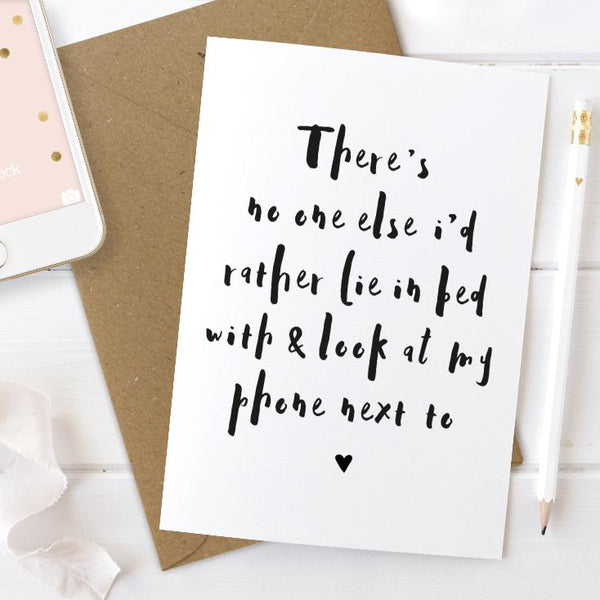 There's
no one else i'd
rather lie in bed
with & look at my
phone next to
ock